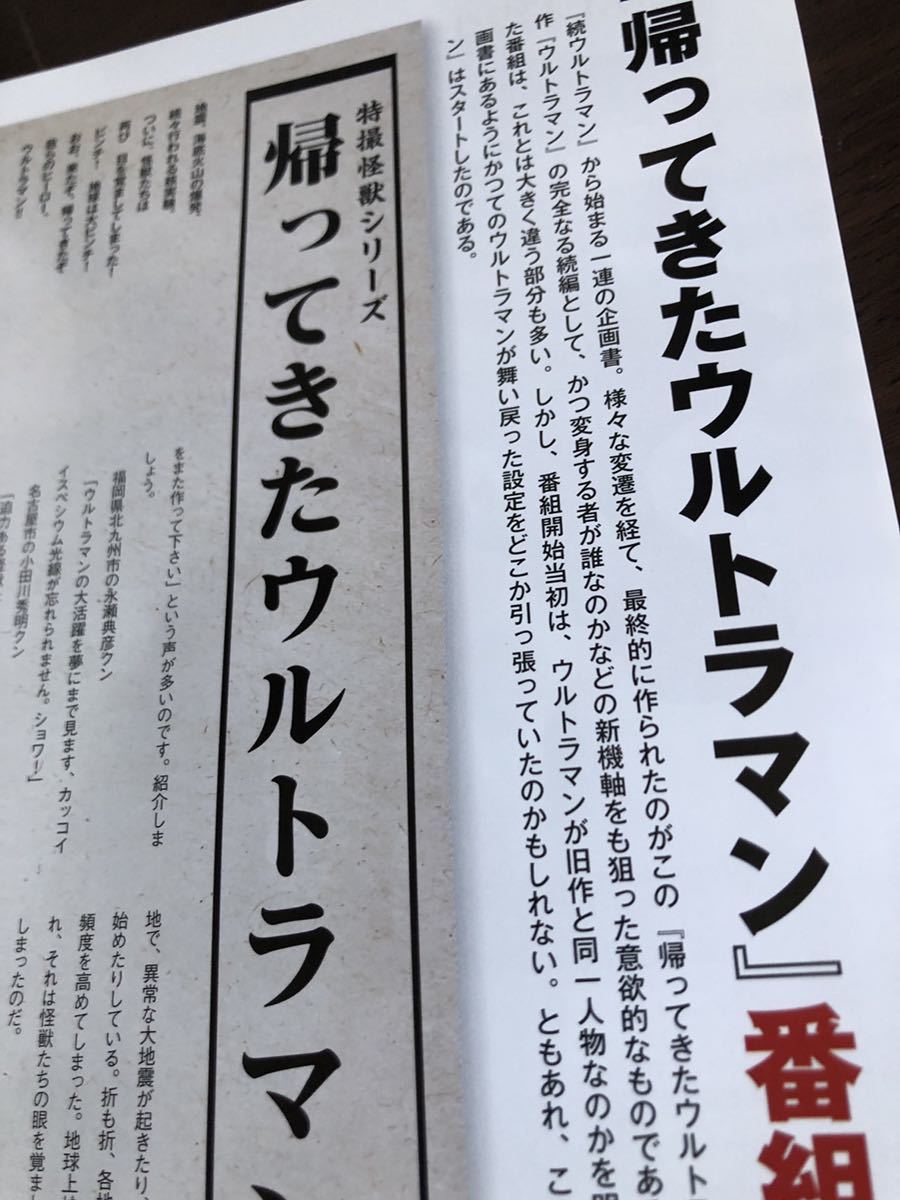 『帰ってきたウルトラマン』番組
『続ウルトラマン』から始まる一連の企画書。様々な変遷を経て、最終的に作られたのがこの『帰ってきたウルト
作『ウルトラマン』の完全なる続編として、かつ変身する者が誰なのかなどの新機軸をも狙った意欲的なものであ
た番組は、これとは大きく違う部分も多い。しかし、番組開始当初は、ウルトラマンが旧作と同一人物なのかを明
画書にあるようにかつてのウルトラマンが舞い戻った設定をどこか引っ張っていたのかもしれない。ともあれ、こ
ン』はスタートしたのである。
特撮怪獣シリーズ
帰ってきたウルトラマン
地震、海底火山の爆発、
続々行われる核実験、
ついに、怪獣たちは
再び 目を覚ましてしまった!
ピンチ! 地球は大ピンチ!
おお、来たぞ、帰ってきたぞ
我らのヒーロー、
ウルトラマン!!
をまた作って下さい」という声が多いのです。紹介しま
しょう。
福岡県北九州市の永瀬典彦クン
「ウルトラマンの大活躍を夢にまで見ます、カッコイ
イスペシウム光線が忘れられません。ショワー」
名古屋市の小田川秀明クン
「迫力ある怪獣
地で、異常な大地震が起きたり、
始めたりしている。折も折、各地
頻度を高めてしまった。地球上は
れ、それは怪獣たちの眼を覚まし
しまったのだ。